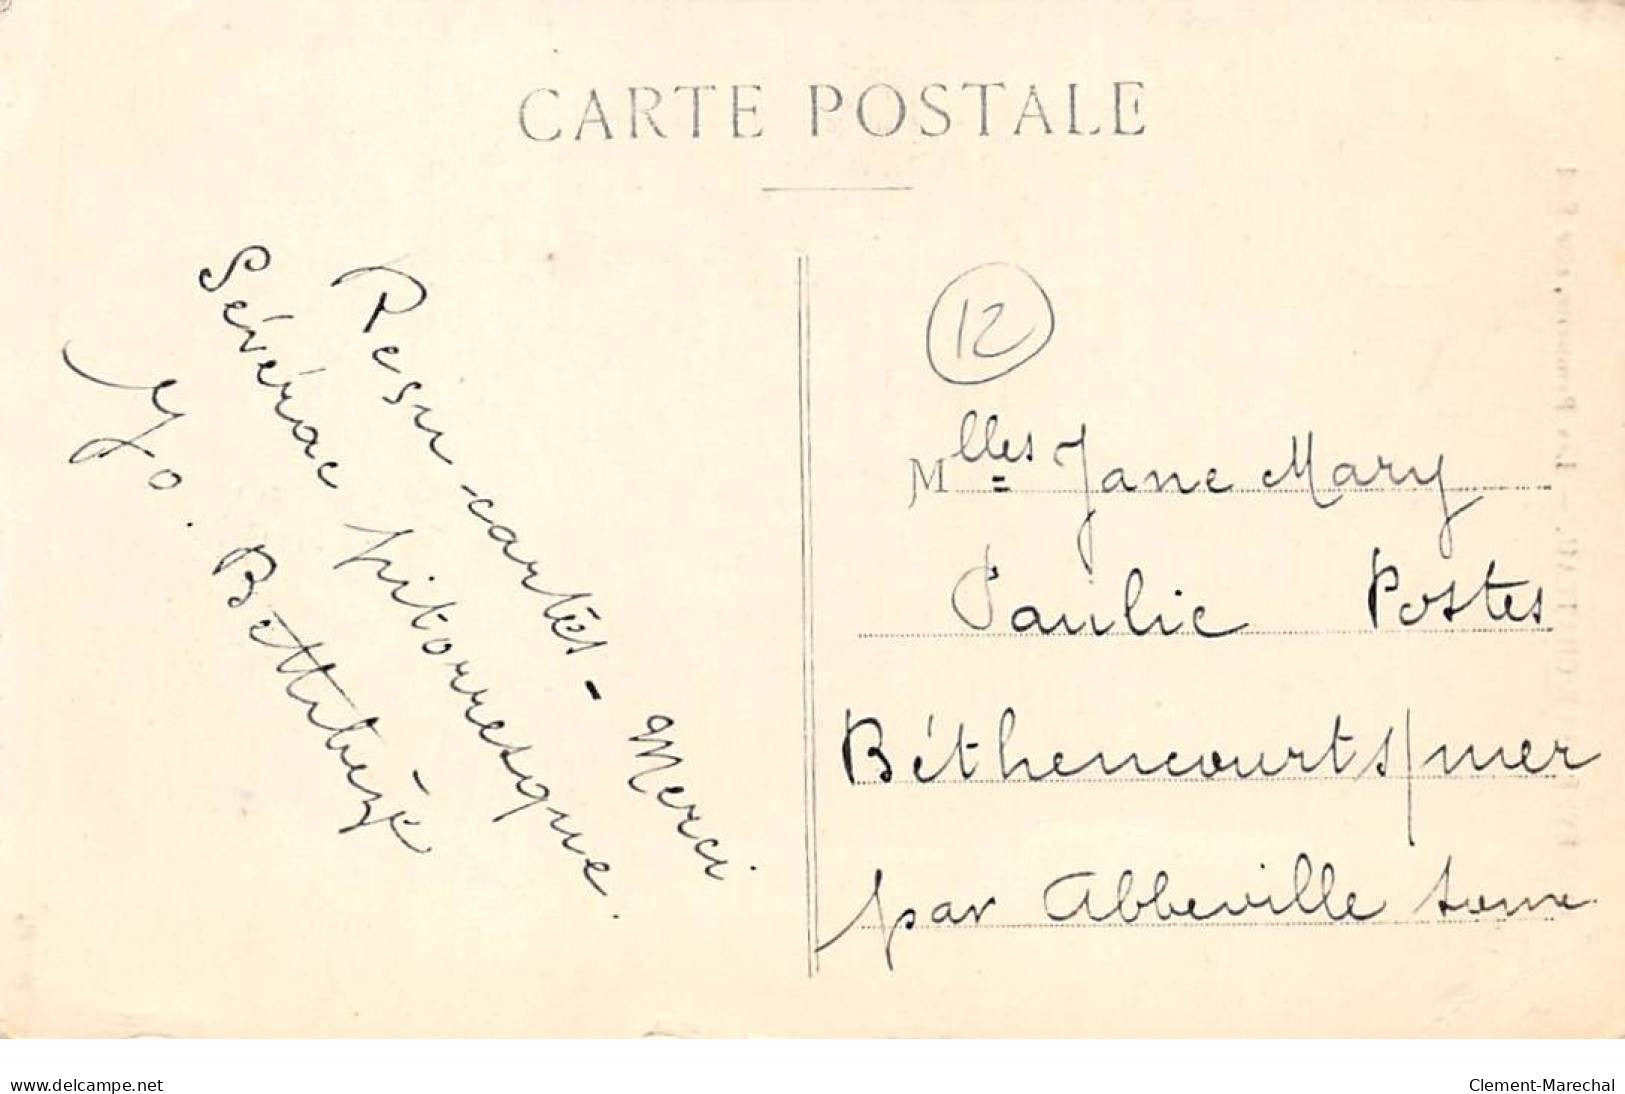 CARTE POSTALE
Resu cartes - Merci
Sévérac pitorresque.
Yo.
12
Mlles Jane Mary
Paulie Postes
Béthencourt s/mer
par Abbeville Somme
www.delcampe.net
Clement-Marechal